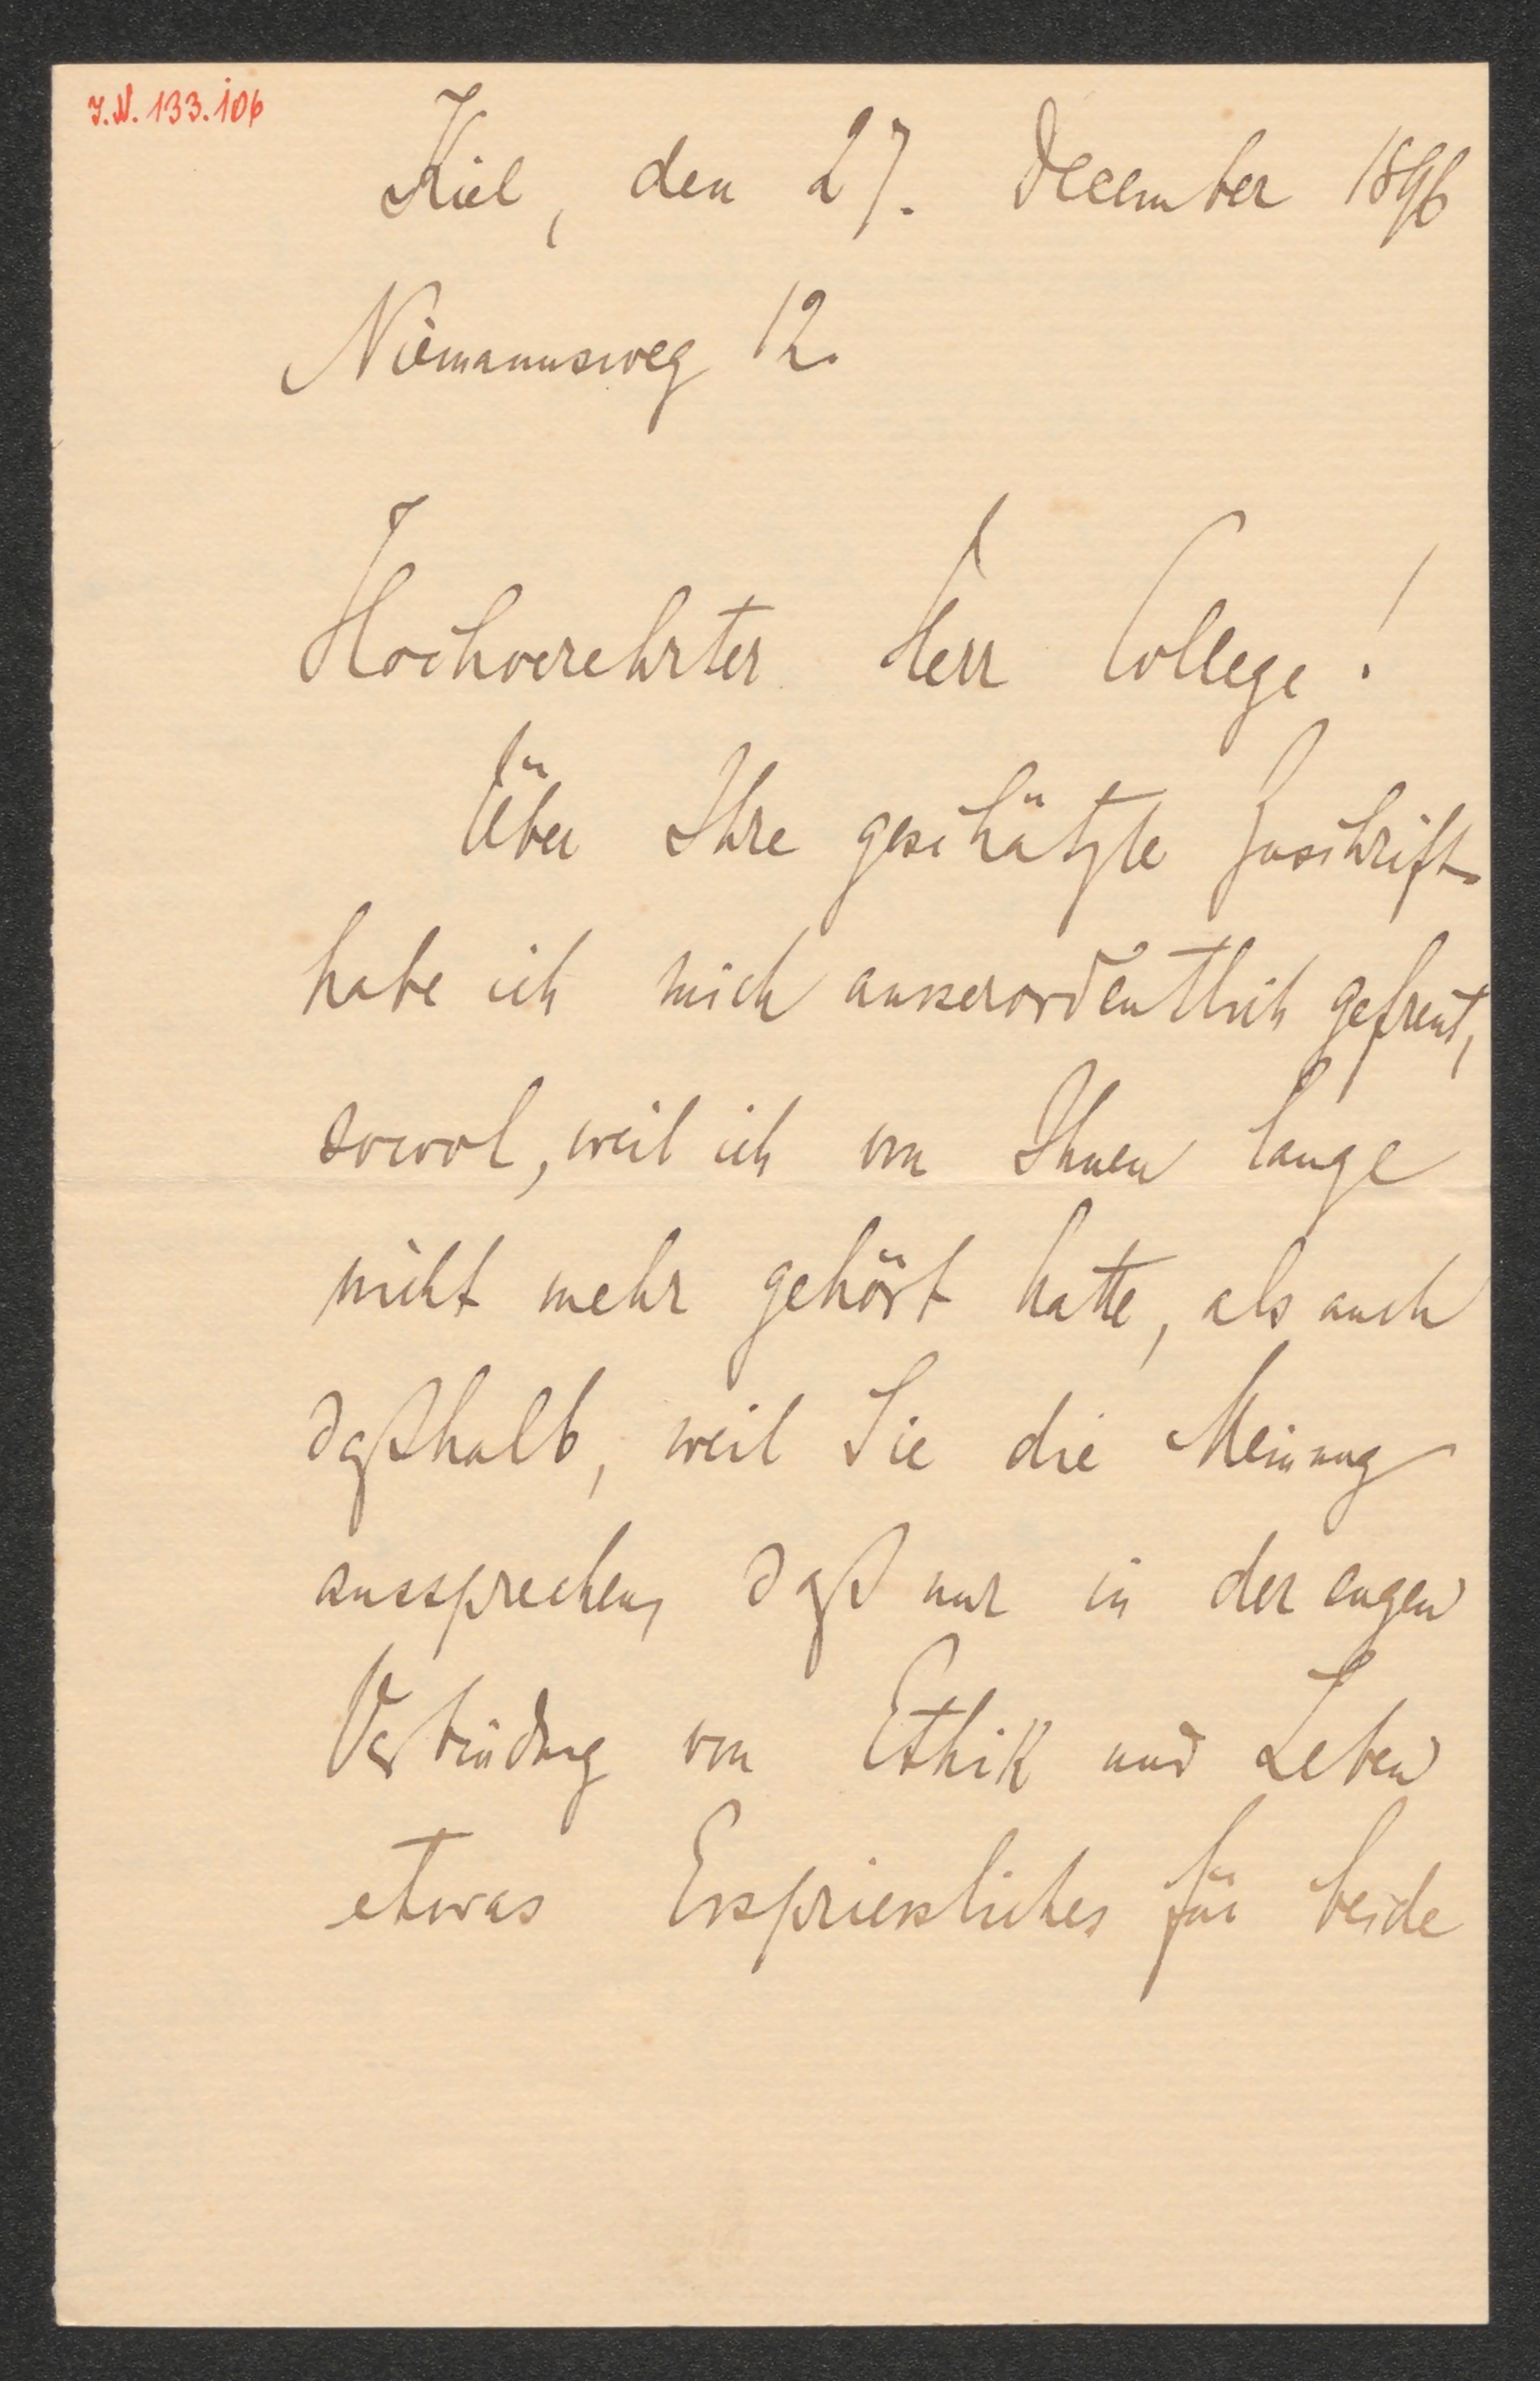 J.N. 133.106
Kiel, den 27. December 1896
Niemannsweg 12.
Hochverehrter Herr College!
Über Ihre geschätzte Zuschrift
habe ich mich ausserordentlich gefreut,
sowol, weil ich von Ihnen lange
nicht mehr gehört hatte, als auch
deßhalb, weil Sie die Meinung
aussprechen, daß nur in der engen
Verbindung von Ethik und Leben
etwas Erspriessliches für beide